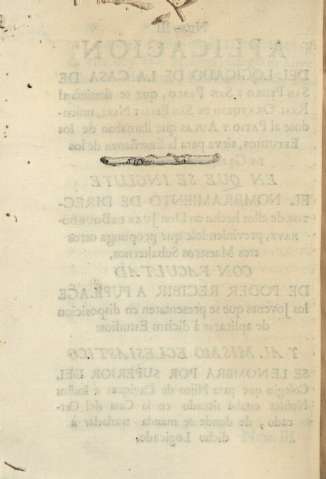 Num. III.
APLICACION
DEL LOGICADO DE LA CASA DE
San Pedro y San Pablo, que se destinó al
duce al Patio y Aulas que llamaban de los
Estudios, sirva para la Enseñanza de los
EN QUE SE INCLUYE
EL NOMBRAMIENTO DE DIREC-
de ellos hecho en Don Juan
previniendole que proponga otros
tres Maestros Subalternos,
CON FACULTAD
DE PODER RECIBIR A PUPILAGE
los Jovenes que se presentaren en disposicion
de aplicarse á dichos Estudios:
Y AL MISMO ECLESIASTICO
SE NOMBRA POR SUPERIOR DEL
Colegio que para Hijos de Caciques e Indios
Nobles estaba situado en la Casa del Cer-
cado, y de donde se manda trasladar á
dicho Logicado.